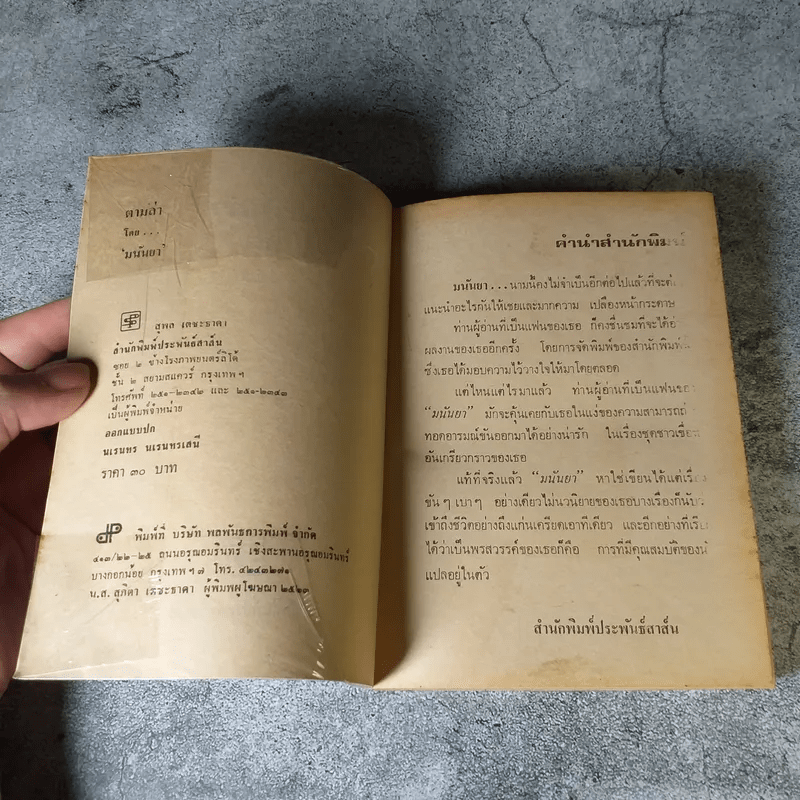 ตามล่า
โดย...
'มนันยา'
สุพล เตชะธาดา
สำนักพิมพ์ประพันธ์สาส์น
ซอย ๒ ข้างโรงภาพยนตร์ลิโด้
ชั้น ๒ สยามสแควร์ กรุงเทพฯ
โทรศัพท์ ๒๕๑-๒๓๔๒ และ ๒๕๑-๒๓๔๓
เป็นผู้พิมพ์จำหน่าย
ออกแบบปก
นเรนทร นเรนทรเสนี
ราคา ๓๐ บาท
พิมพ์ที่ บริษัท พลพันธการพิมพ์ จำกัด
๔๑๓/๒๒-๒๕ ถนนอรุณอมรินทร์ เชิงสะพานอรุณอมรินทร์
บางกอกน้อย กรุงเทพฯ ๗ โทร. ๔๒๔๓๒๗๑
น.ส. สุภิดา เตชะธาดา ผู้พิมพ์ผู้โฆษณา ๒๕๒๓
คำนำสำนักพิมพ์
มนันยา...นามนี้คงไม่จำเป็นอีกต่อไปแล้วที่จะต้อง
แนะนำอะไรกันให้เชยและมากความ เปลืองหน้ากระดาษ
ท่านผู้อ่านที่เป็นแฟนของเธอ ก็คงชื่นชมที่จะได้
ผลงานของเธออีกครั้ง โดยการจัดพิมพ์ของสำนักพิมพ์
ซึ่งเธอได้มอบความไว้วางใจให้มาโดยตลอด
แต่ไหนแต่ไรมาแล้ว ท่านผู้อ่านที่เป็นแฟน
"มนันยา" มักจะคุ้นเคยกับเธอในแง่ของความสามารถ
ทอดอารมณ์ขันออกมาได้อย่างน่ารัก ในเรื่องชุดชาวเขื่อน
อันเกรียวกราวของเธอ
แท้ที่จริงแล้ว "มนันยา" หาใช่เขียนได้แต่เรื่อง
ขันๆ เบาๆ อย่างเดียวไม่นวนิยายของเธอบางเรื่องก็นับว่า
เข้าถึงชีวิตอย่างถึงแก่นเครียดเอาทีเดียว และอีกอย่างที่เรียก
ได้ว่าเป็นพรสวรรค์ของเธอก็คือ การที่มีคุณสมบัติของนัก
แปลอยู่ในตัว
สำนักพิมพ์ประพันธ์สาส์น